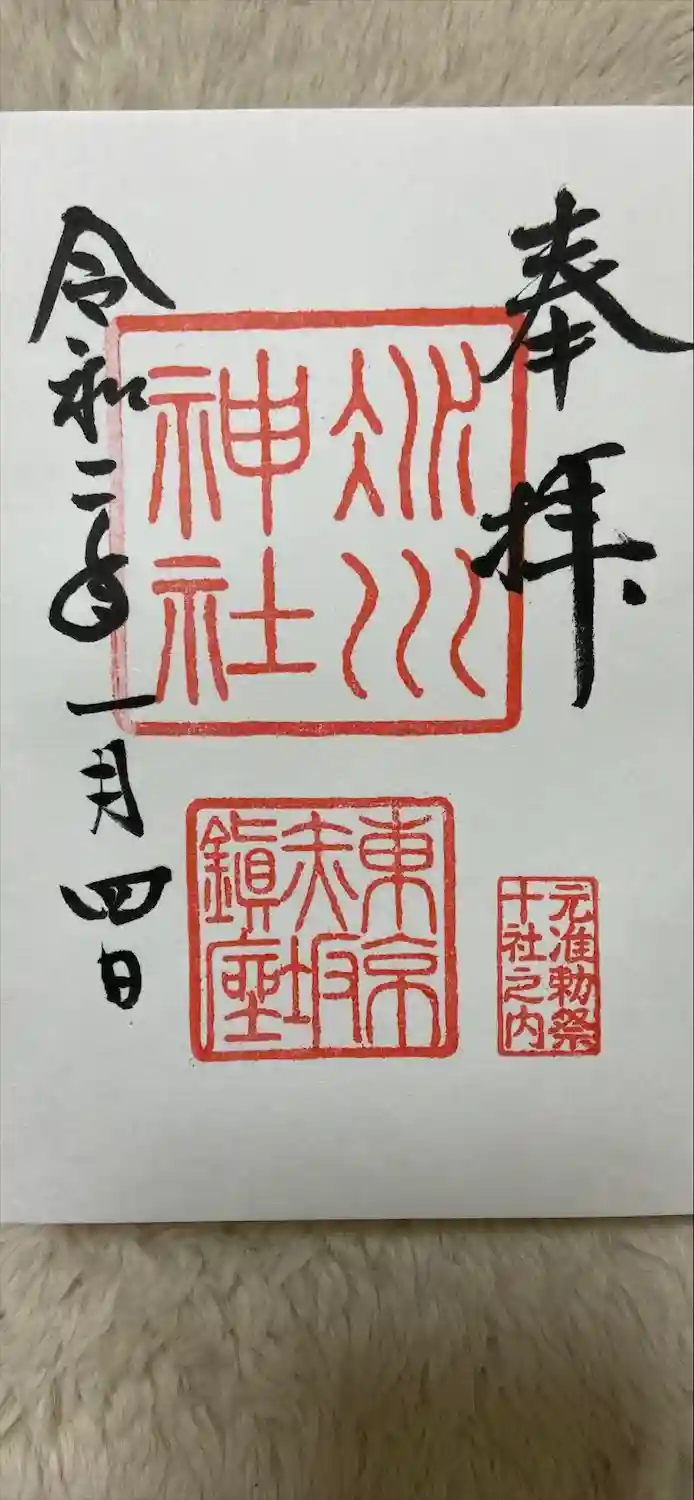 奉拝
氷川
神社
東京
赤坂
鎭座
元准勅祭
十社之内
令和二年一月四日